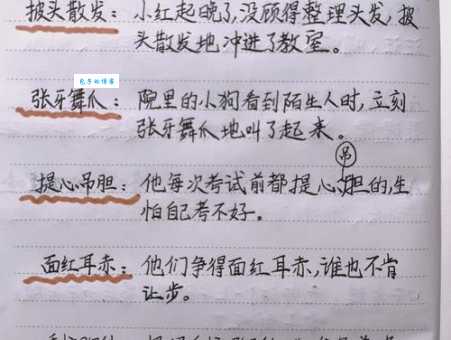 披头散发：小红起晚了,没顾得整理头发,披
头散发地冲进了教室。
张牙舞爪：院里的小狗看到陌生人时,立刻
张牙舞爪地叫了起来。
吊
提心吊胆：他每次考试前都提心胆的,生
怕自己考不好。
面红耳赤：他们争得面红耳赤,谁也不肯
让步。